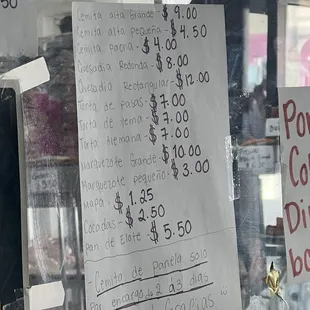 50
Cemita alta Grande - $9.00
Cemita alta pequeña - $4.50
Cemita patria - $4.00
Quesadia Redonda - $8.00
Quesadia Rectangular - $12.00
Torta de pasas - $7.00
Torta de yema - $7.00
Torta Alemana - $7.00
Marquezote Grande - $10.00
Marquezote pequeño - $3.00
Mapa - $1.25
Cocadas - $2.50
Pan de Elote - $5.50
- Cemita de Panela solo
Por encargo de 2 a 3 dias
Gracias
Po
Co
Di
bo